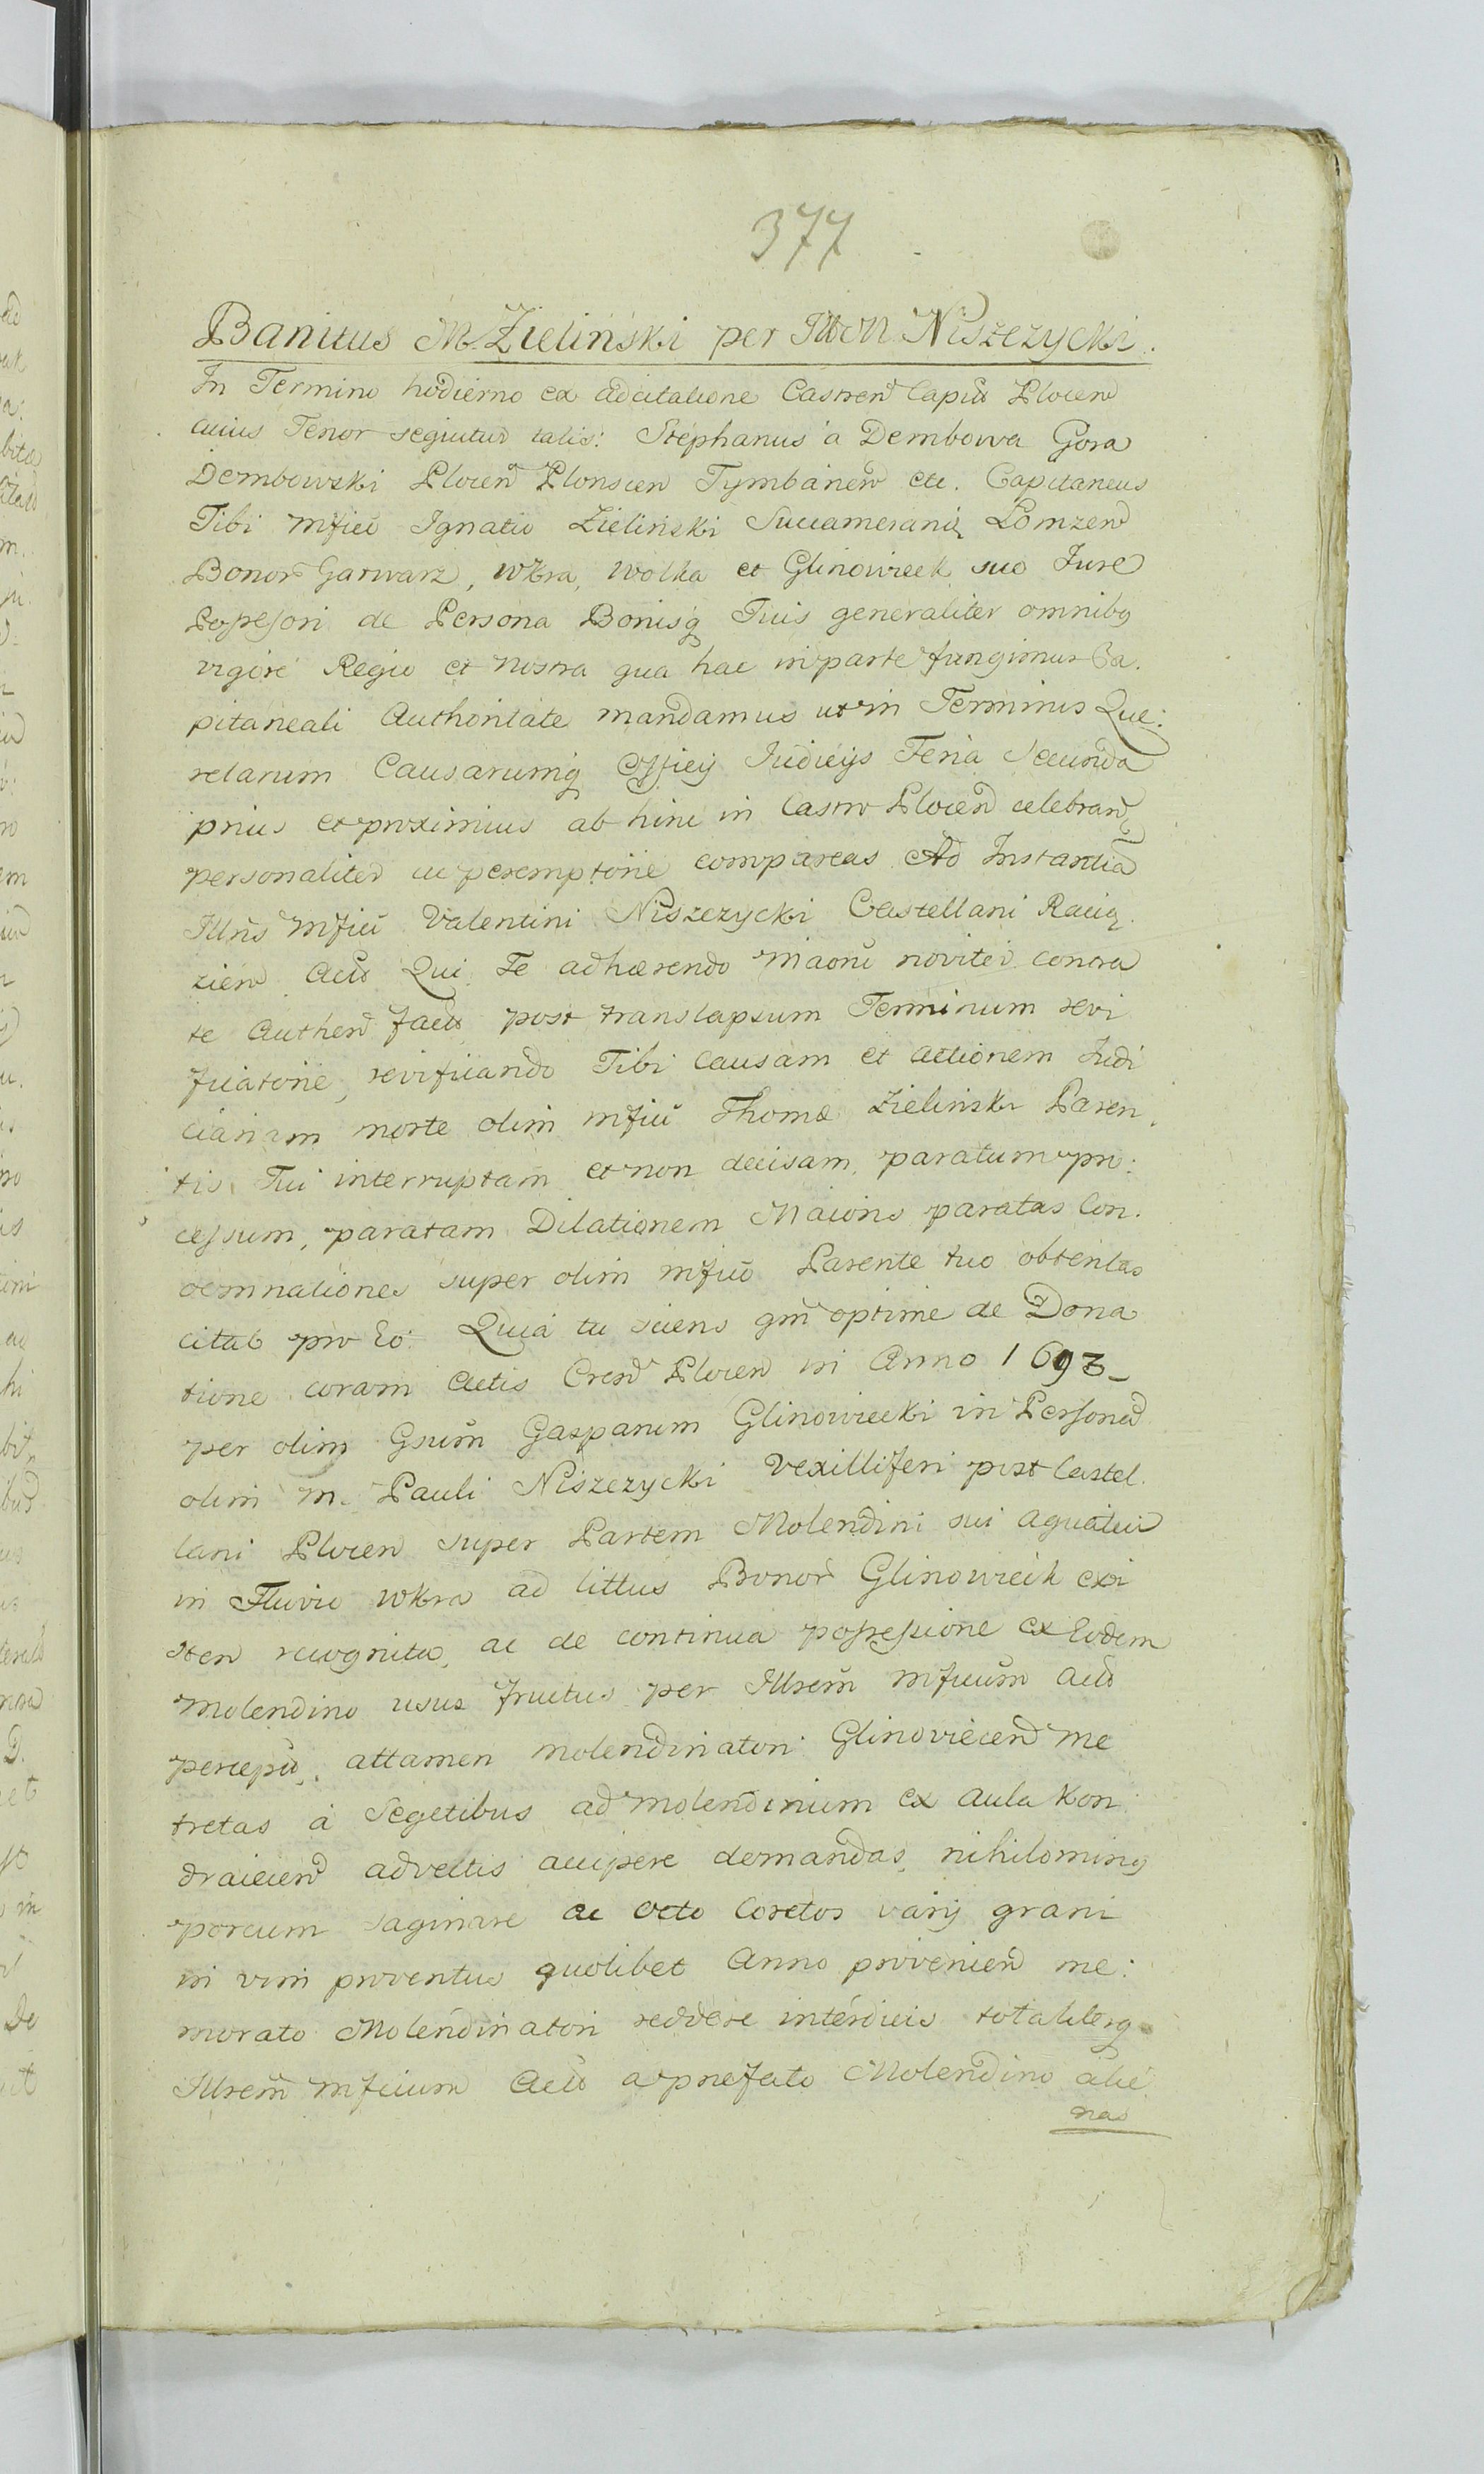 377
Banitus M. Zieliński per Ill M Niszczycki.
In Termino hodierno ex adcitatione Castren Captli Plocen
cuius Tenor sequitur talis: Stephanus a Dembowa Gora
Dembowski Plocen Plonscen Tymbanen etc. Capitaneus
Tibi Mfico Ignatio Zieliński Succamerarię Łomzen
Bonor Garwarz, Wkra, Wolka et Glinowieck suo Jure
Possessori de Persona Bonisq Tuis generaliter omnibq
vigore Regio et nostra qua hac in parte fungimur Ca.
pitaneali Authoritate mandamus ut in Terminis Que:
relarum Causarumq Officij Judicijs Feria Secunda
prius et proximius ab hinc in Castro Plocen celebran
personaliter ac peremptorie compareas Ad Instantia
Illris Mfici Valentini Niszczycki Castellani Racią
zien Act Qui Te adhærendo Maoni noviter contra
te Authen fact post translapsum Terminum revi
ficatorie, revificando Tibi causam et actionem Judi
ciariam morte olim mfici Thomæ Zielinski Paren.
tis Tui interruptam et non decisam, paratum pro:
cessum, paratam Dilationem Maioris paratas Con.
demnationes super olim mfico Parente tuo obtentas
citat pro Eo: Quia tu sciens qm optime de Dona
tione coram Actis Cren Plocen in Anno 1693
per olim Gsum Gasparum Glinowiecki in Persona
olim M. Pauli Niszczycki Vexilliferi post Castel.
lani Plocen super Partem Molendini sui aquatici
in Fluvio Wkra ad littus Bonor Glinowieck exi
sten recognita, ac de continua possessione ex Eodem
Molendino usus fructus per Illrem Mficum Act
percepti, attamen molendinatori Glinoviecen me
tretas à Segetibus ad molendinum ex Aula Kon
draiecen advectis accipere demandas, nihilominq
porcum saginare ac octo Coretos varij grani
in vim proventus quolibet Anno provenien me:
morato Molendinatori reddere interdicis totaliterq
Illrem Mficum Act a præfato Molendino alie
nas